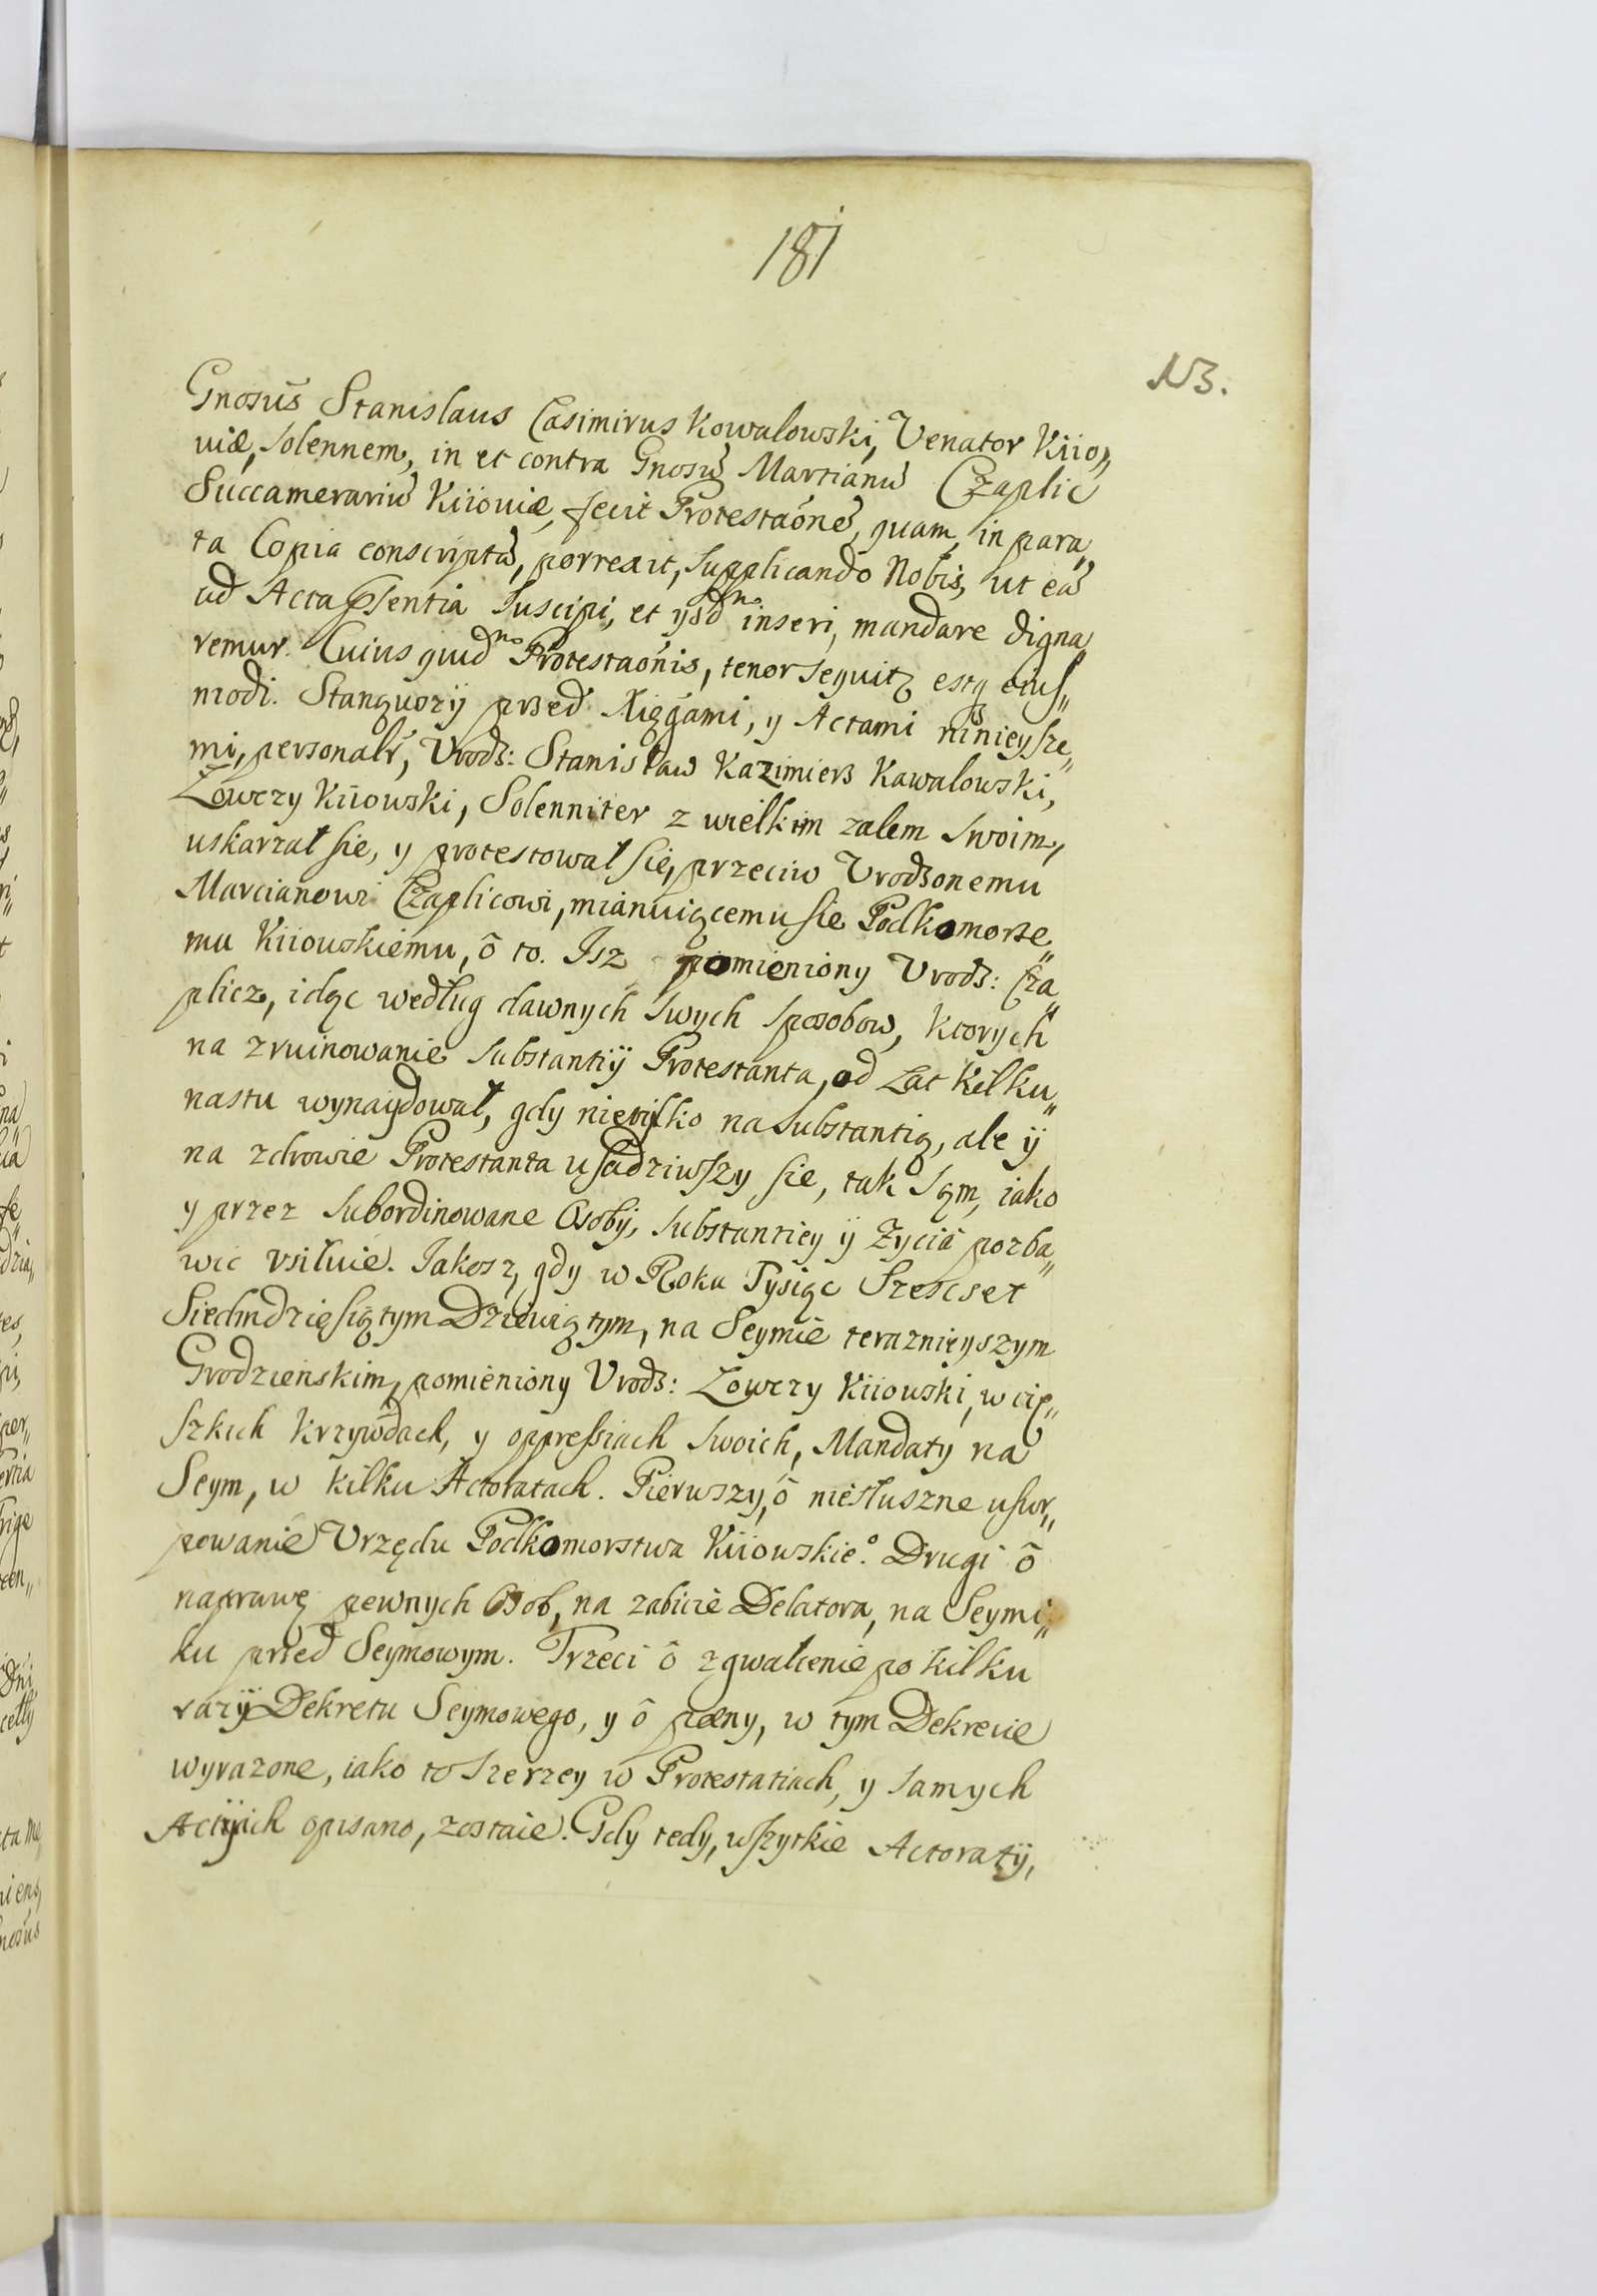 181
NB.
Gnosus Stanislaus Casimirus Kowalowski, Venator Kiio„
uiæ, Solennem, in et contra Gnosũ Martianũ Czaplic
Succamerariũ Kiiouiæ, fecit Protestaõnẽ, quam, in para„
ta Copia conscriptã, porrexit, Supplicando Nobis, ut eã
ad Acta pñsentia Suscipi, et ysdno inseri, mandare digna„
remur. Cuius quidno Protestaõnis, tenor Sequitʒ estqʒ eius„
modi. Stanąwszÿ przed Xięgami, y Actami ninieysze„
mi, personalr, Vrodz: Stanisław Kazimierz Kawalowski,
Łowczy Kiiowski, Solenniter z wielkim zalem Swoim,
uskarzał sie, y protestował sie, przeciw Vrodzonemu
Marcianowi Czaplicowi, mianuiącemu sie Podkomorze„
mu Kiiowskiemu, ô to. Isz pomieniony Vrodz: Cza„
plicz, idąc według dawnych Swych Sposobow, Ktorych
na zruinowanie Substantiÿ Protestanta, od Lat Kilku„
nastu wynaydował, gdy nietylko na Substantią, ale ÿ
na zdrowie Protestanta usadziwszy sie, tak Sąm, iako
y przez Subordinowane Osobÿ, Substantiey ÿ Zycia pozba„
wic vsiłuie. Iakosz, gdy w Roku Tysiąc Szescset
Siedmdziesiątym Dziewiątym, na Seymie teraznieyszym
Grodzienskim, pomieniony Vrodz: Łowczy Kiiowski, w cię„
szkich Krzywdach, y oppressiach Swoich, Mandaty na
Seym, w kilku Actoratach. Pierwszy, ô niesłuszne usur„
powanie Vrzędu Podkomorstwa Kiiowskieº. Drugi ô
naprawę pewnych Osob, na zabicie Delatora, na Seymi„
ku przed Seymowym. Trzeci ô zgwałcenie po kilku
razÿ Dekretu Seymowego, y ô pæny, w tym Dekrecie
wyrazone, iako to Szerzey w Protestatiach, y Samych
Actÿach opisano, zostaie. Gdy tedy, wszytkie Actoratÿ,